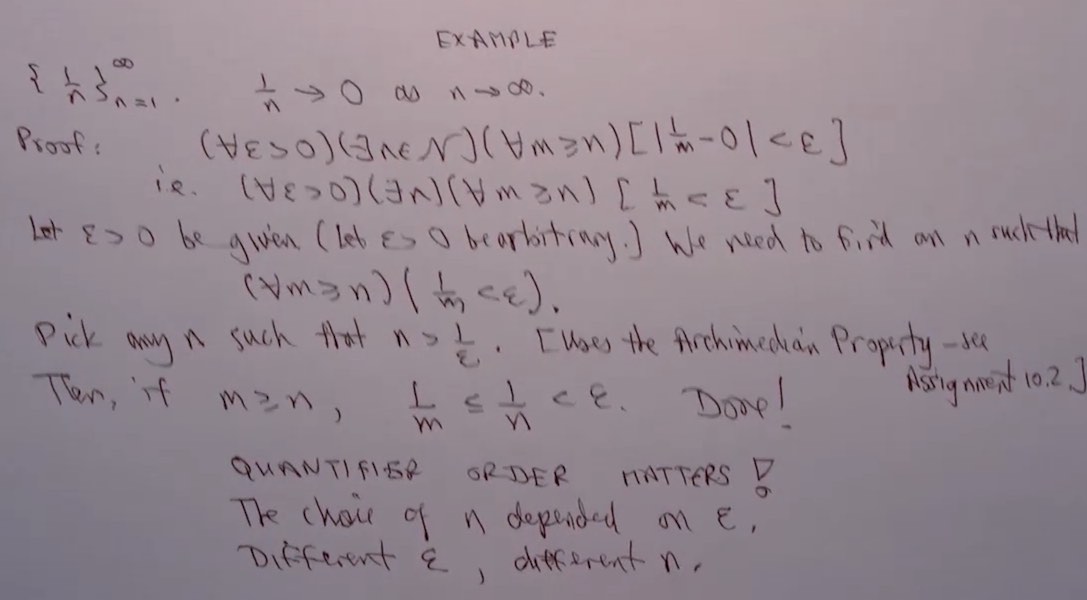 EXAMPLE
{1/n}∞n=1. 1/n → 0 as n → ∞.
Proof: (∀ε>0)(∃n∈N)(∀m≥n)[|1/m-0|<ε]
i.e. (∀ε>0)(∃n)(∀m≥n)[1/m<ε]
Let ε>0 be given (let ε>0 be arbitrary.) We need to find an n such that
(∀m≥n)(1/m<ε).
Pick any n such that n>1/ε. [Uses the Archimedian Property - see
Assignment 10.2.]
Then, if m≥n, 1/m ≤ 1/n < ε. Done!
QUANTIFIER ORDER MATTERS!
The choice of n depended on ε.
Different ε, different n.